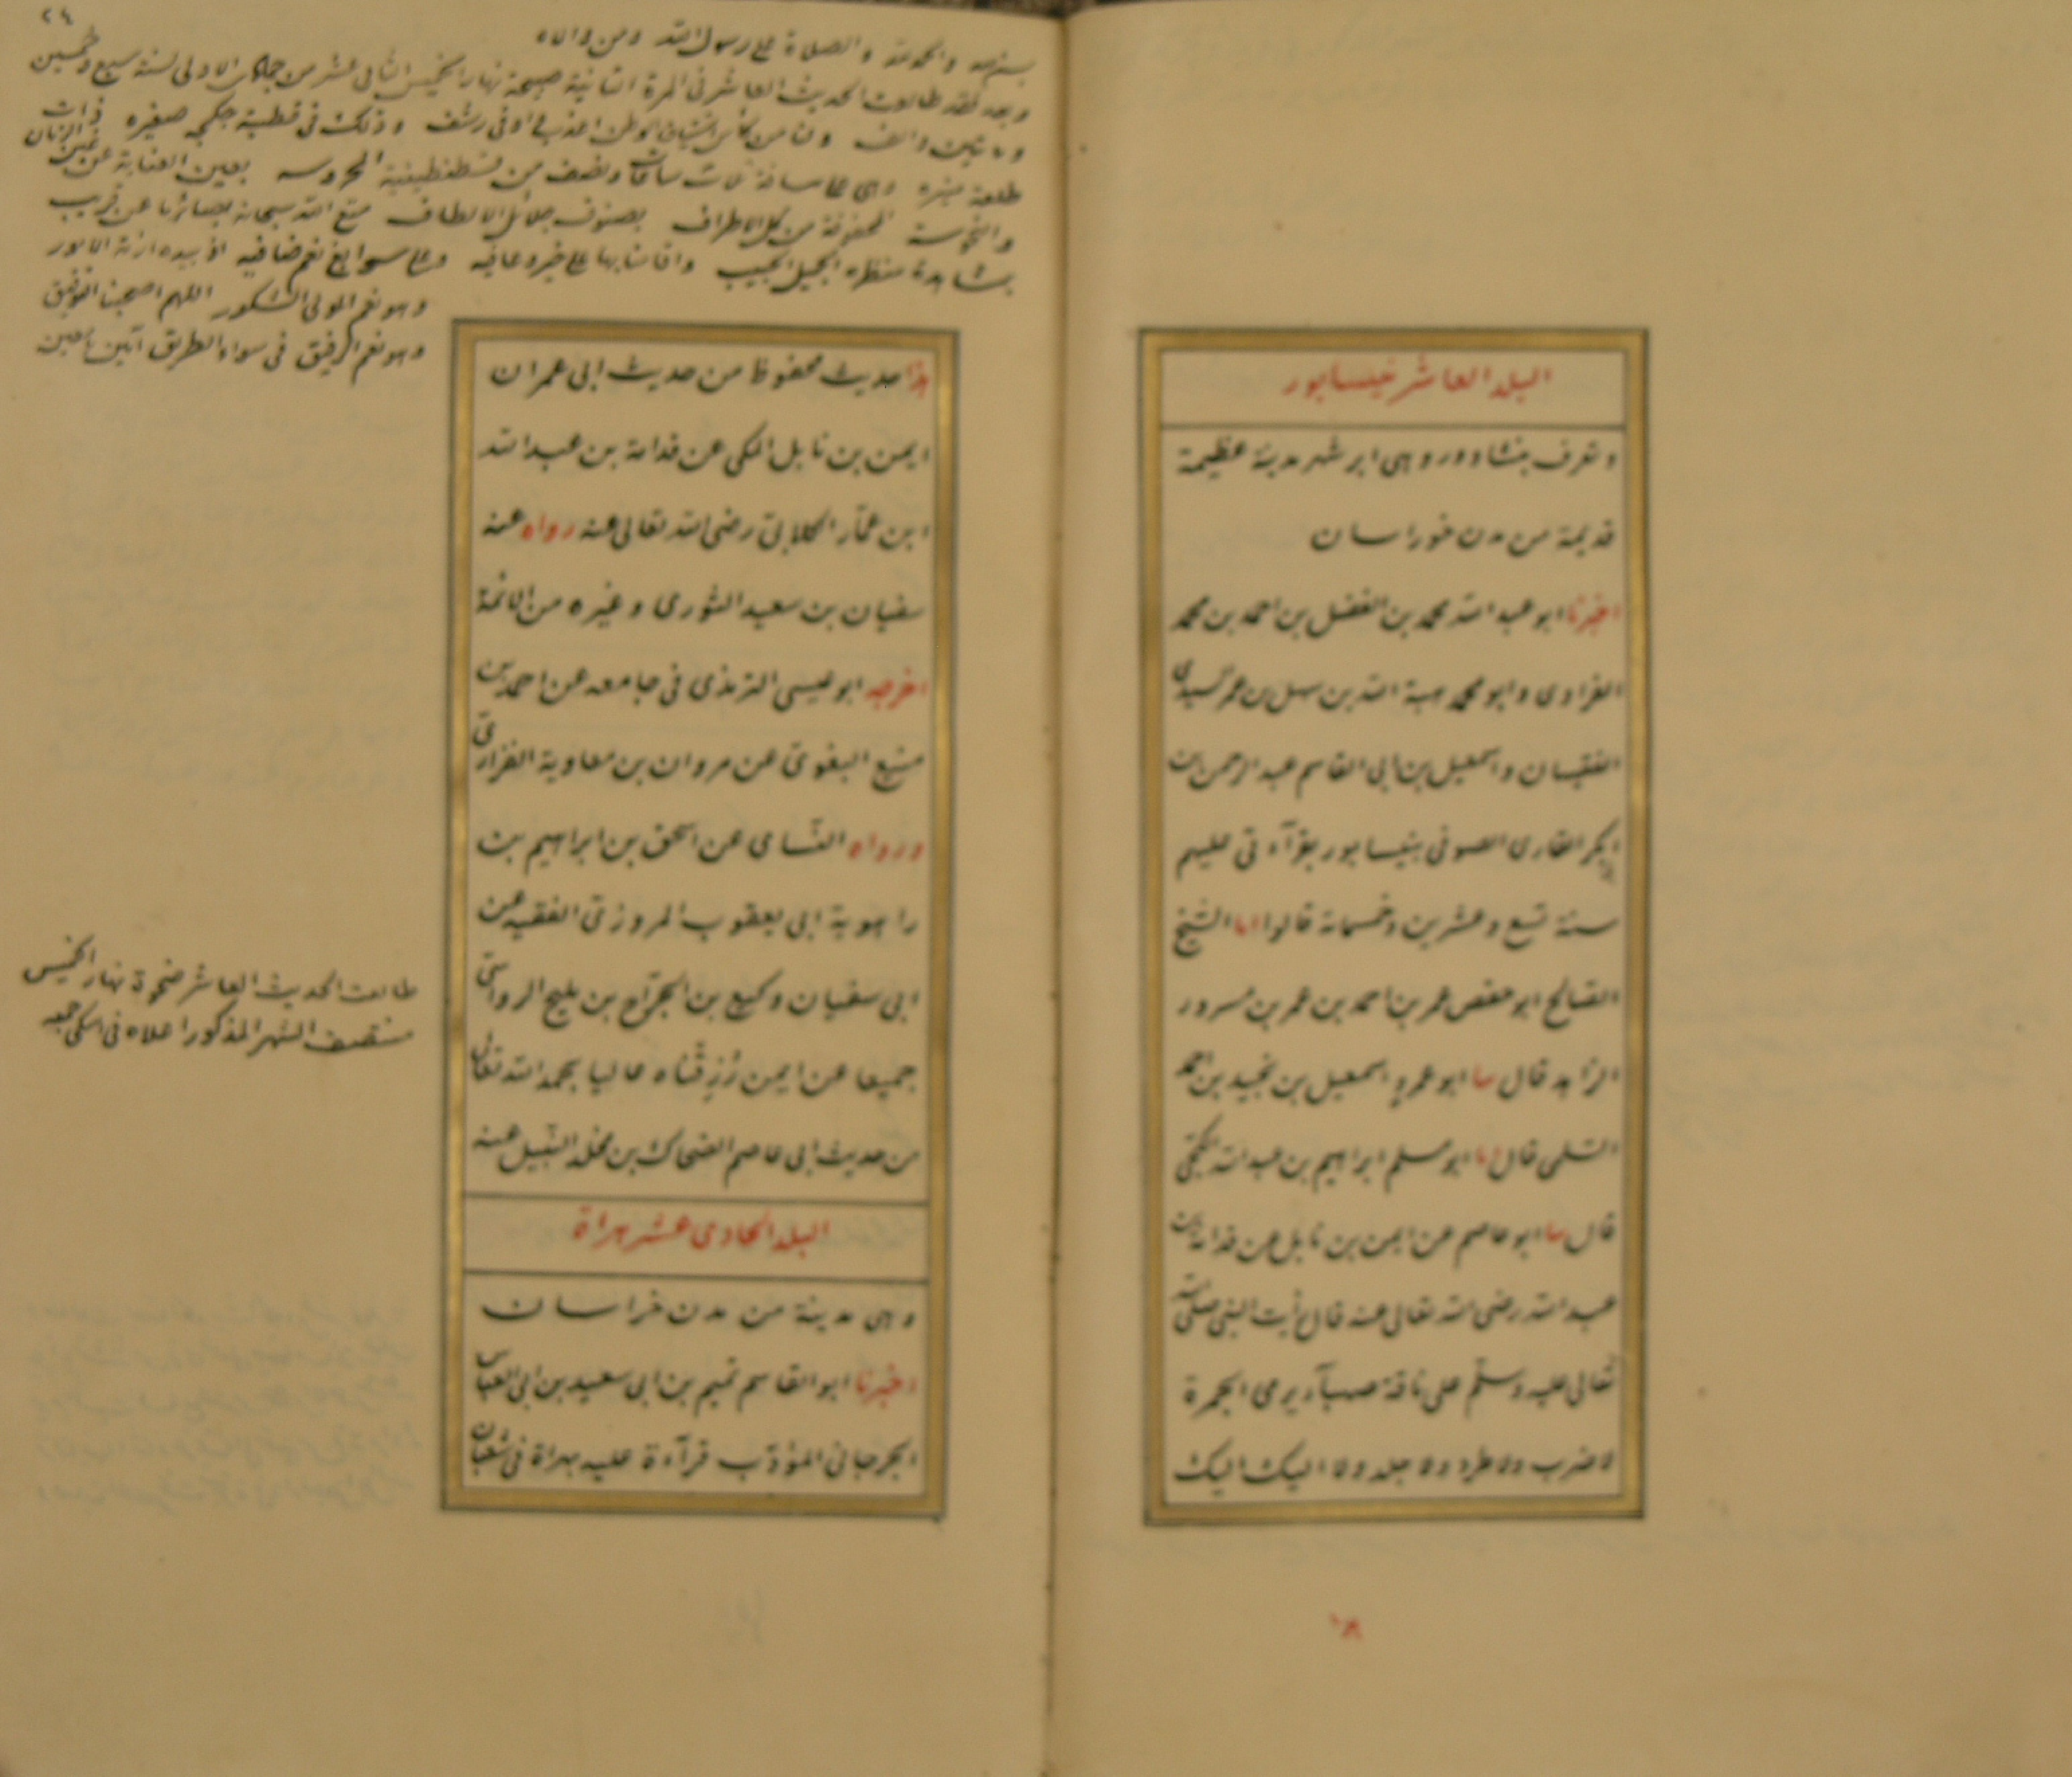 البلد العاشر نيسابور
وتعرف بنشاوور وهى ابر شهر مدينة عظيمة
قديمة من مدن خوراسان
اخبرنا ابو عبد الله محمد بن الفضل بن احمد بن محمد
الفراوى وابو محمد هبة الله بن سهل بن عمر السيدى
الفقيهان واسمعيل بن ابى القاسم عبد الرحمن بن
ابى بكر القارى الصوفى بنيسابور بقرآءتى عليهم
سنة تسع وعشرين وخمسمائة قالوا انا الشيخ
الصالح ابو حفص عمر بن احمد بن عمر بن مسرور
الزاهد قال سا ابو عمرو اسمعيل بن نجيد بن احمد
السلمى قال انا ابو مسلم ابراهيم بن عبد الله الكجى
قال سا ابو عاصم عن ايمن بن نابل عن قدامة بن
عبد الله رضى الله تعالى عنه قال رأيت النبى صلى الله
تعالى عليه وسلم على ناقة صهبآء يرمى الجمرة
لا ضرب ولا طرد ولا جلد ولا اليك اليك
١٨
٢٤
والحمد لله والصلاة على رسول الله ومن والاه
وبعد فقد طالعت الحديث العاشر فى المرة الثانية صبيحة نهار الخميس الثانى عشر من جمادى الاولى لسنة سبع وخمسين
ومائتين والف وذلك فى قطبة جكمجه صغيره ذات
طلعة منيره وهى على مسافة ثلاث ساعات ونصف من قسطنطينية المحروسه بعين العناية عن غين الزمان
المحفوفة من كل الاطراف بصنوف جلائل الالطاف متع الله سبحانه بصائرنا عن قريب
بشاهدة منظره الجميل الحبيب واقامنا بها على خير وعافيه وعلى سوابغ نعم ضافيه اذ بيده ازمة الامور
وهو نعم المولى الشكور اللهم اصحبنا التوفيق
وهو نعم الرفيق فى سواء الطريق آمين يا معين
هذا حديث محفوظ من حديث ابى عمران
ايمن بن نابل المكى عن قدامة بن عبد الله
ابن عمّار الكلابىّ رضى الله تعالى عنه رواه عنه
سفيان بن سعيد الثورى وغيره من الائمة
اخرجه ابو عيسى الترمذى فى جامعه عن احمد بن
منيع البغوىّ عن مروان بن معاوية الفزارىّ
ورواه النّسامى عن اسحق بن ابراهيم بن
راهوية ابى يعقوب المروزىّ الفقيه عن
ابى سفيان وكيع بن الجرّاح بن مليح الرواسىّ
جميعا عن ايمن رُزِقْناه عاليا بحمد الله تعالى
من حديث ابى عاصم الضحاك بن مخلد النّبيل عنه
البلد الحادى عشر هراة
وهى مدينة من مدن خراسان
اخبرنا ابو القاسم تميم بن ابى سعيد بن ابى العباس
الجرجانى المؤدّب قرآءة عليه بهراة فى شعبان
طالعت الحديث العاشر ضحوة نهار الخميس
منتصف الشهر المذكور اعلاه فى